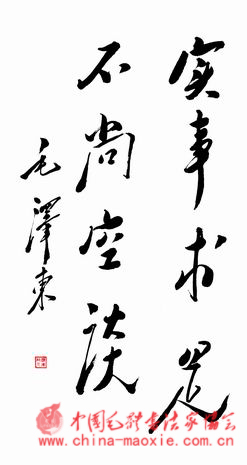 实事求是
不尚空談
毛澤東
中国毛体书法家协会
www.china-maoxie.com.cn